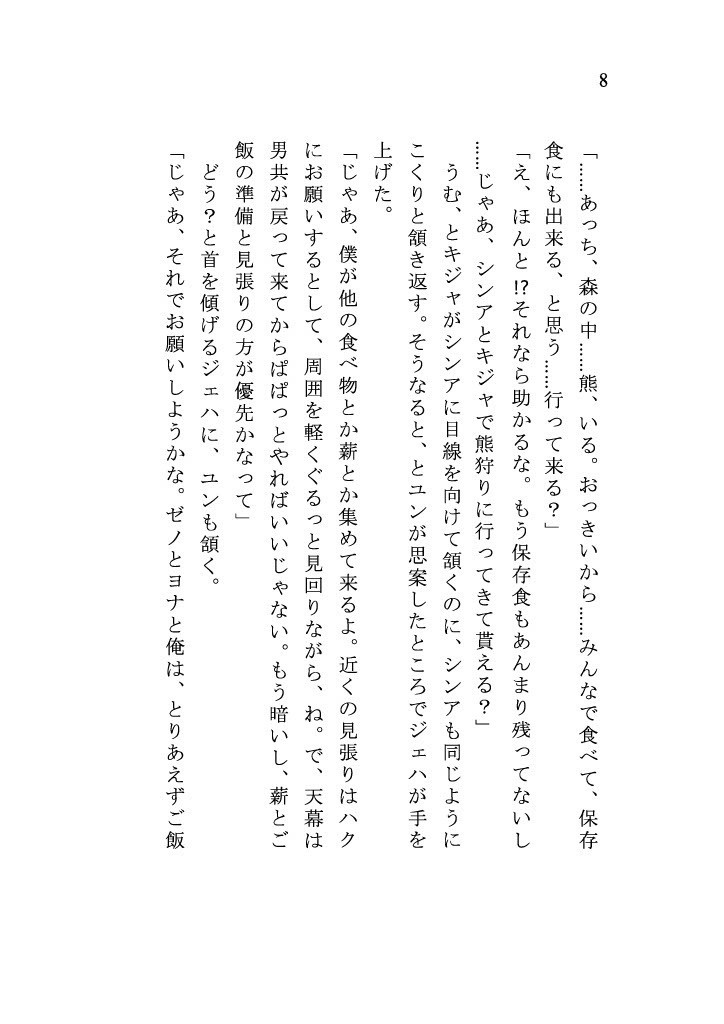 8
「……あっち、森の中……熊、いる。おっきいから……みんなで食べて、保存
食にも出来る、と思う……行って来る？」
「え、ほんと⁉それなら助かるな。もう保存食もあんまり残ってないし
……じゃあ、シンアとキジャで熊狩りに行ってきて貰える？」
　うむ、とキジャがシンアに目線を向けて頷くのに、シンアも同じように
こくりと頷き返す。そうなると、とユンが思案したところでジェハが手を
上げた。
「じゃあ、僕が他の食べ物とか薪とか集めて来るよ。近くの見張りはハク
にお願いするとして、周囲を軽くぐるっと見回りながら、ね。で、天幕は
男共が戻って来てからぱぱっとやればいいじゃない。もう暗いし、薪とご
飯の準備と見張りの方が優先かなって」
　どう？と首を傾げるジェハに、ユンも頷く。
「じゃあ、それでお願いしようかな。ゼノとヨナと俺は、とりあえずご飯